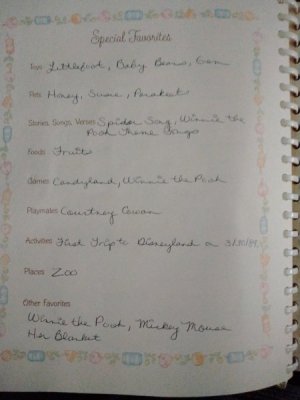 Special Favorites
Toys Littlefoot, Baby Bears, Gem
Pets Honey, Susie, Parakeet
Stories, Songs, Verses Spider Song, Winnie the
Pooh Theme Songs
Foods Fruits
Games Candyland, Winnie the Pooh
Playmates Courtney Cowan
Activities First Trip to Disneyland on
Places Zoo
Other Favorites
Winnie the Pooh, Mickey Mouse
Her Blanket